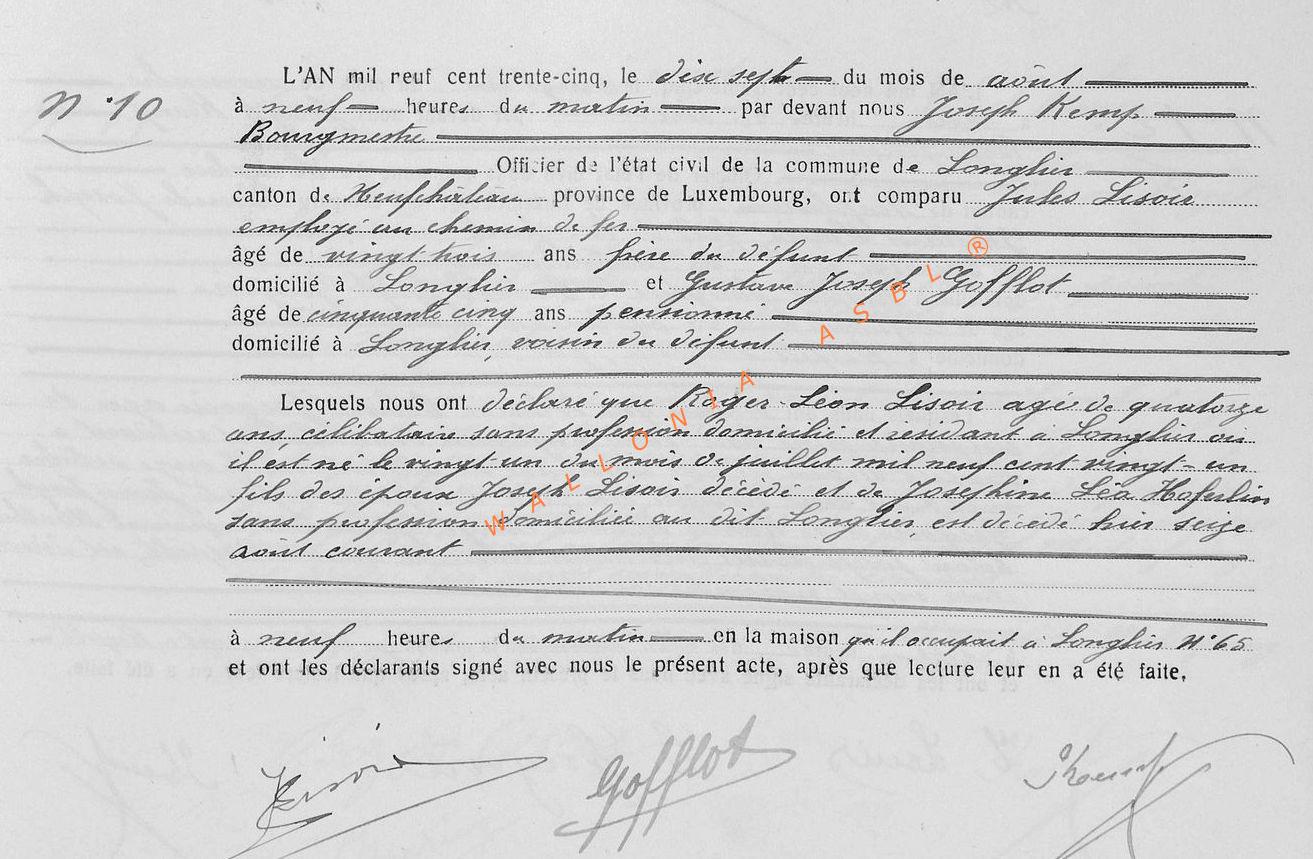 L'AN mil neuf cent trente-cinq, le dix sept du mois de août
N° 10
à neuf heures du matin par devant nous Joseph Kemp
Bourgmestre
Officier de l'état civil de la commune de Longlier
canton de Neufchâteau province de Luxembourg, ont comparu Jules Lisoir
employé au chemin de fer
âgé de vingt trois ans frère du défunt
domicilié à Longlier et Gustave Joseph Gofflot
âgé de cinquante cinq ans pensionné
domicilié à Longlier, voisin du défunt
Lesquels nous ont déclaré que Roger Léon Lisoir agé de quatorze
ans, célibataire sans profession domicilié et résidant à Longlier où
il est né le vingt un du mois de juillet mil neuf cent vingt-un
fils des époux Joseph Lisoir décédé et de Joséphine Léa Haferlin
sans profession domiciliée au dit Longlier, est décédé hier seize
août courant
à neuf heures du matin en la maison qu'il occupait à Longlier N° 65
et ont les déclarants signé avec nous le présent acte, après que lecture leur en a été faite,
JLisoir Gofflot JKemp
WALLONIA ASBL ®